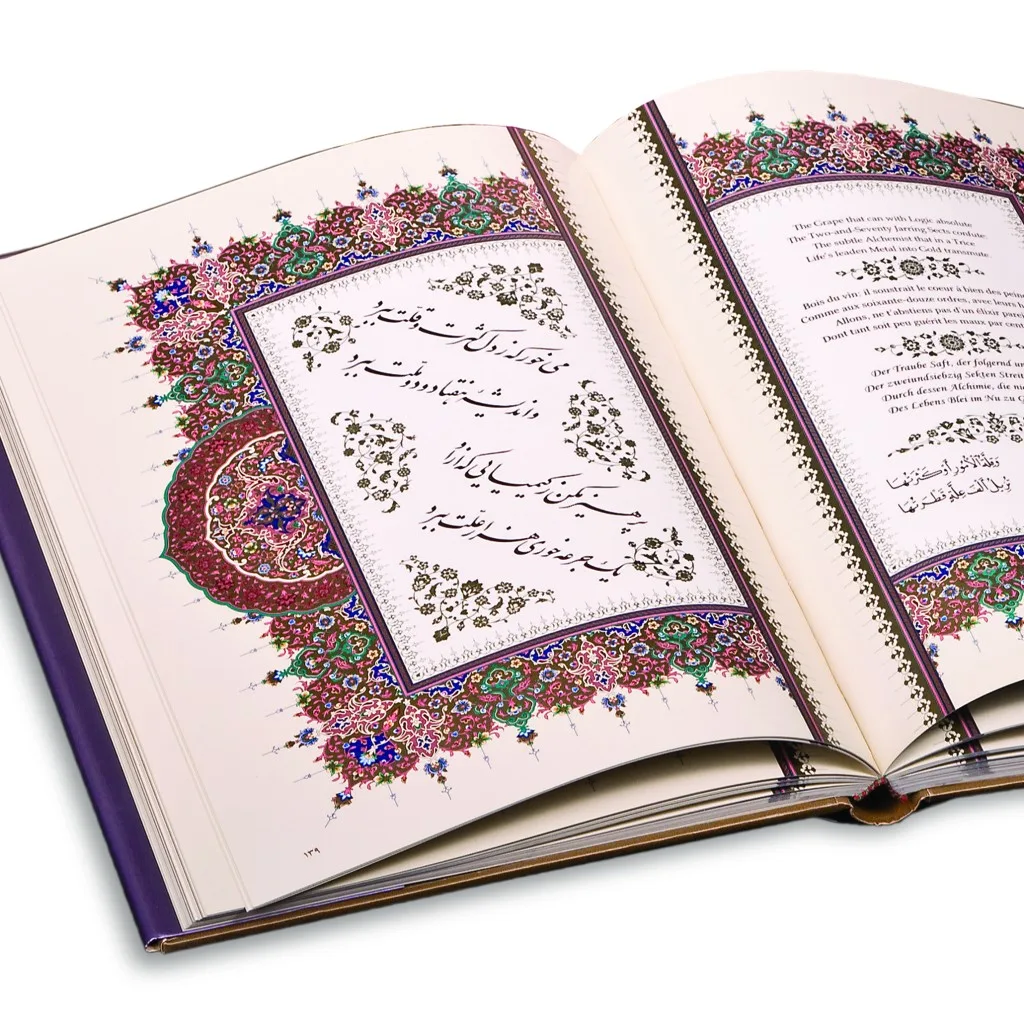 می خور که ز دل کثرت و قلّت ببرد
و اندیشهٔ هفتاد و دو ملّت ببرد
پرهیز مکن ز کیمیایی که از او
یک جرعه خوری هزار علّت ببرد
١٣٩
The Grape that can with Logic absolute
The Two-and-Seventy Jarring Sects confute:
The subtle Alchemist that in a Trice
Life's leaden Metal into Gold transmute.
Bois du vin: il soustrait le coeur à bien des
Comme aux soixante-douze ordres, avec leurs
Allons, ne t'abstiens pas d'un élixir
Dont tant guérit les maux par
Der Traube Saft, der folgernd
Der zweiundsiebzig Sekten
Durch dessen Alchimie, die
Des Lebens Blei im Nu zu
أَوْ كَثْرَتُهَا
تُزِيلُ أَلْفَ عِلَّةٍ قَطْرَتُهَا